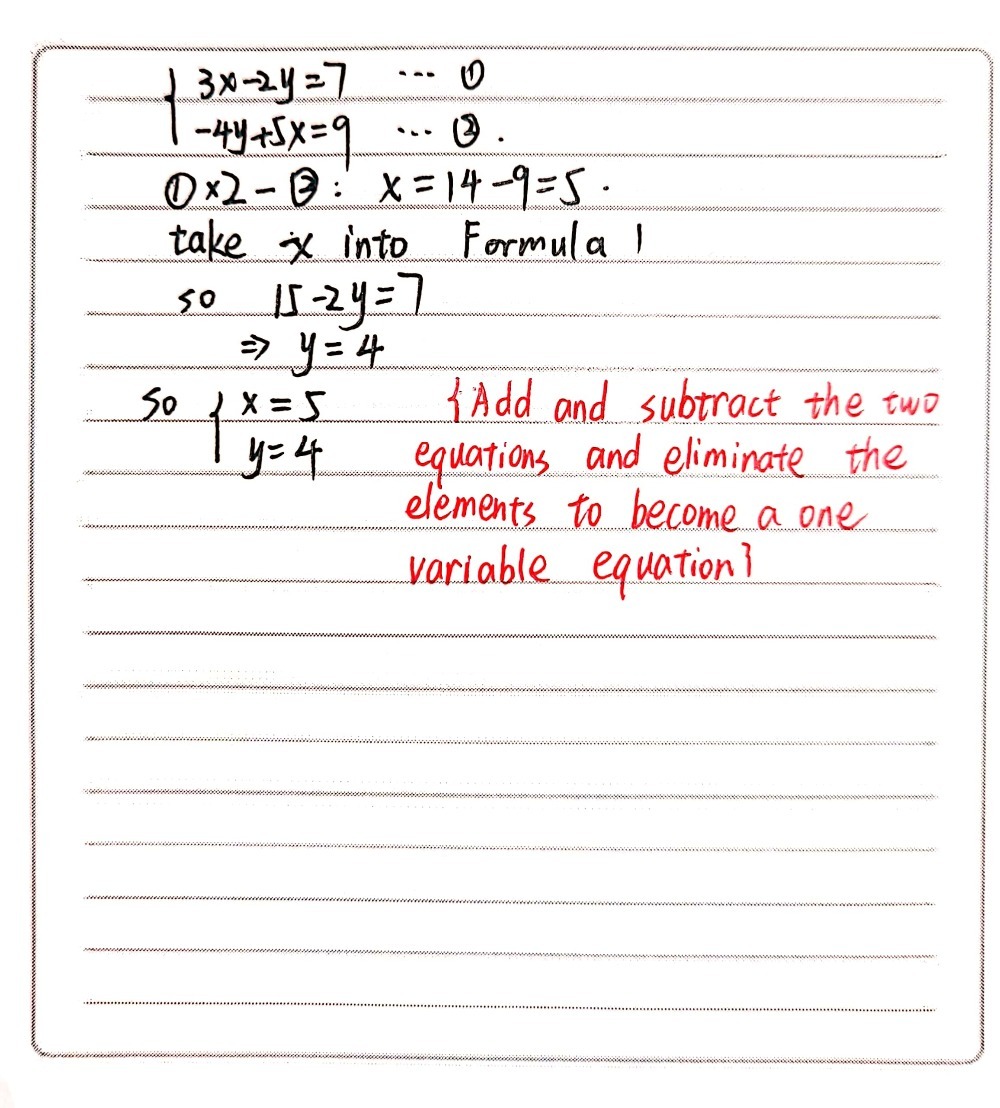 { 3x-2y=7 ... ①
-4y+5x=9 ... ②.
①×2-②: x=14-9=5.
take x into Formula 1
so 15-2y=7
⇒ y=4
so { x=5
y=4
{Add and subtract the two
equations and eliminate the
elements to become a one
variable equation}